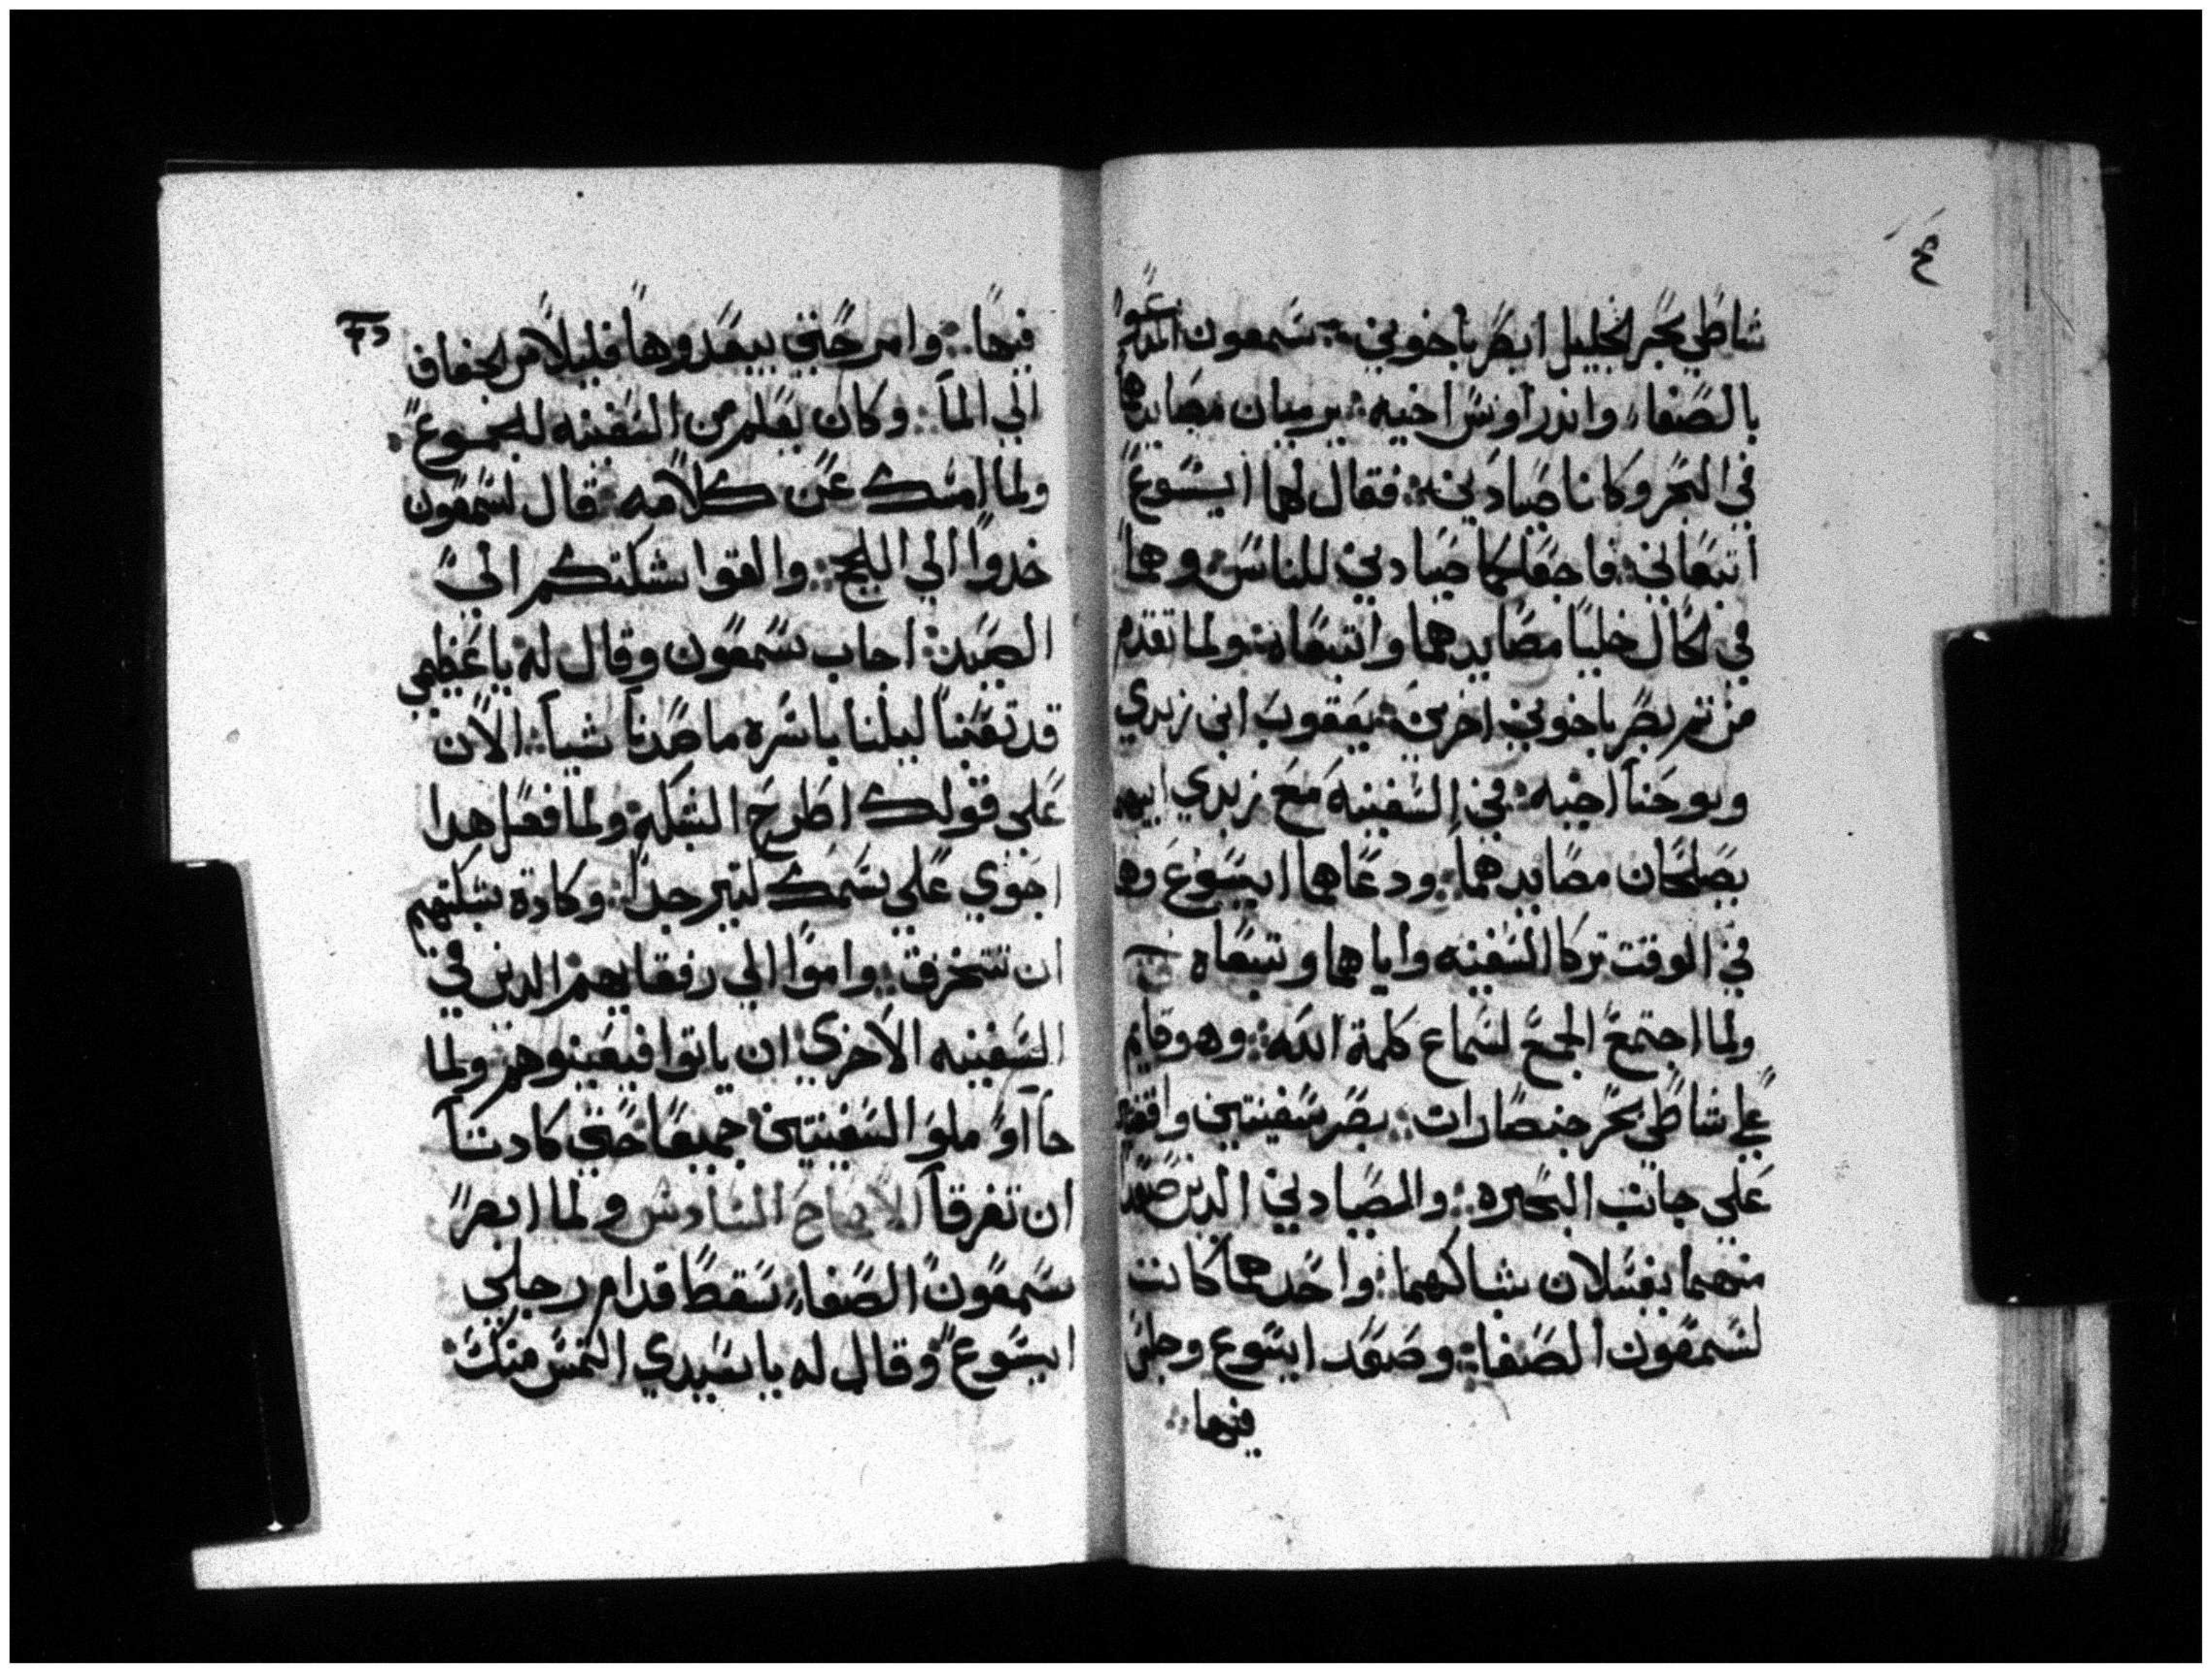 شاطي بحر الجليل ابصر باخوين: سمعون المدعوا
بالصفا، واندراوس اخيه: يرميان مصايدها
في البحر وكانا صيادين: فقال لهما ايسوع
اتبعاني: فاجعلكما صيادين للناس: وهما
في الحال خليا مصايدهما واتبعاه: ولما تقدم
من ثم بصر باخوين اخرين: يعقوب ابن زبدي
ويوحنا اخيه: في السفينه مع زبدي ابيهم
يصلحان مصايدهما: ودعاهما ايسوع وهما
في الوقت تركا السفينه واباهما وتبعاه
ولما اجتمع الجمع لسماع كلمة الله: وهو قايم
علي شاطي بحر جنصارات: بصر سفينتين واقفين
علي جانب البحيره: والصيادين الدين صعدا
منهما يغسلان شباكهما: واحدهما كانت
لسمعون الصفا: وصعد ايسوع وجلس
فيها:
فيها: وامر حتي يبعدوها قليلا من الجفاف
الي الما: وكان يعلم من السفينه للجموع
ولما امسك عن كلامه: قال لسمعون
خدوا الي اللج: والقوا شبكتكم الي
الصيد: اجاب سمعون وقال له يا عظيمي
قد تعبنا ليلنا باسره ما صدنا شيا: الان
علي قولك اطرح الشبكه: ولما فعل هدا
احتوي علي سمك كتير جدا: وكادة شبكتهم
ان تتخرق: واموا الي رفقايهم الدين في
السفينه الاخري: ان ياتوا فيعينوهم ولما
جااوا ملوا السفينتين جميعا حتي كادتا
ان تغرقا الاصحاح السادس ولما ابصر
سمعون الصفا: سقط قدام رجلي
ايسوع وقال له يا سيدي التمس منك: